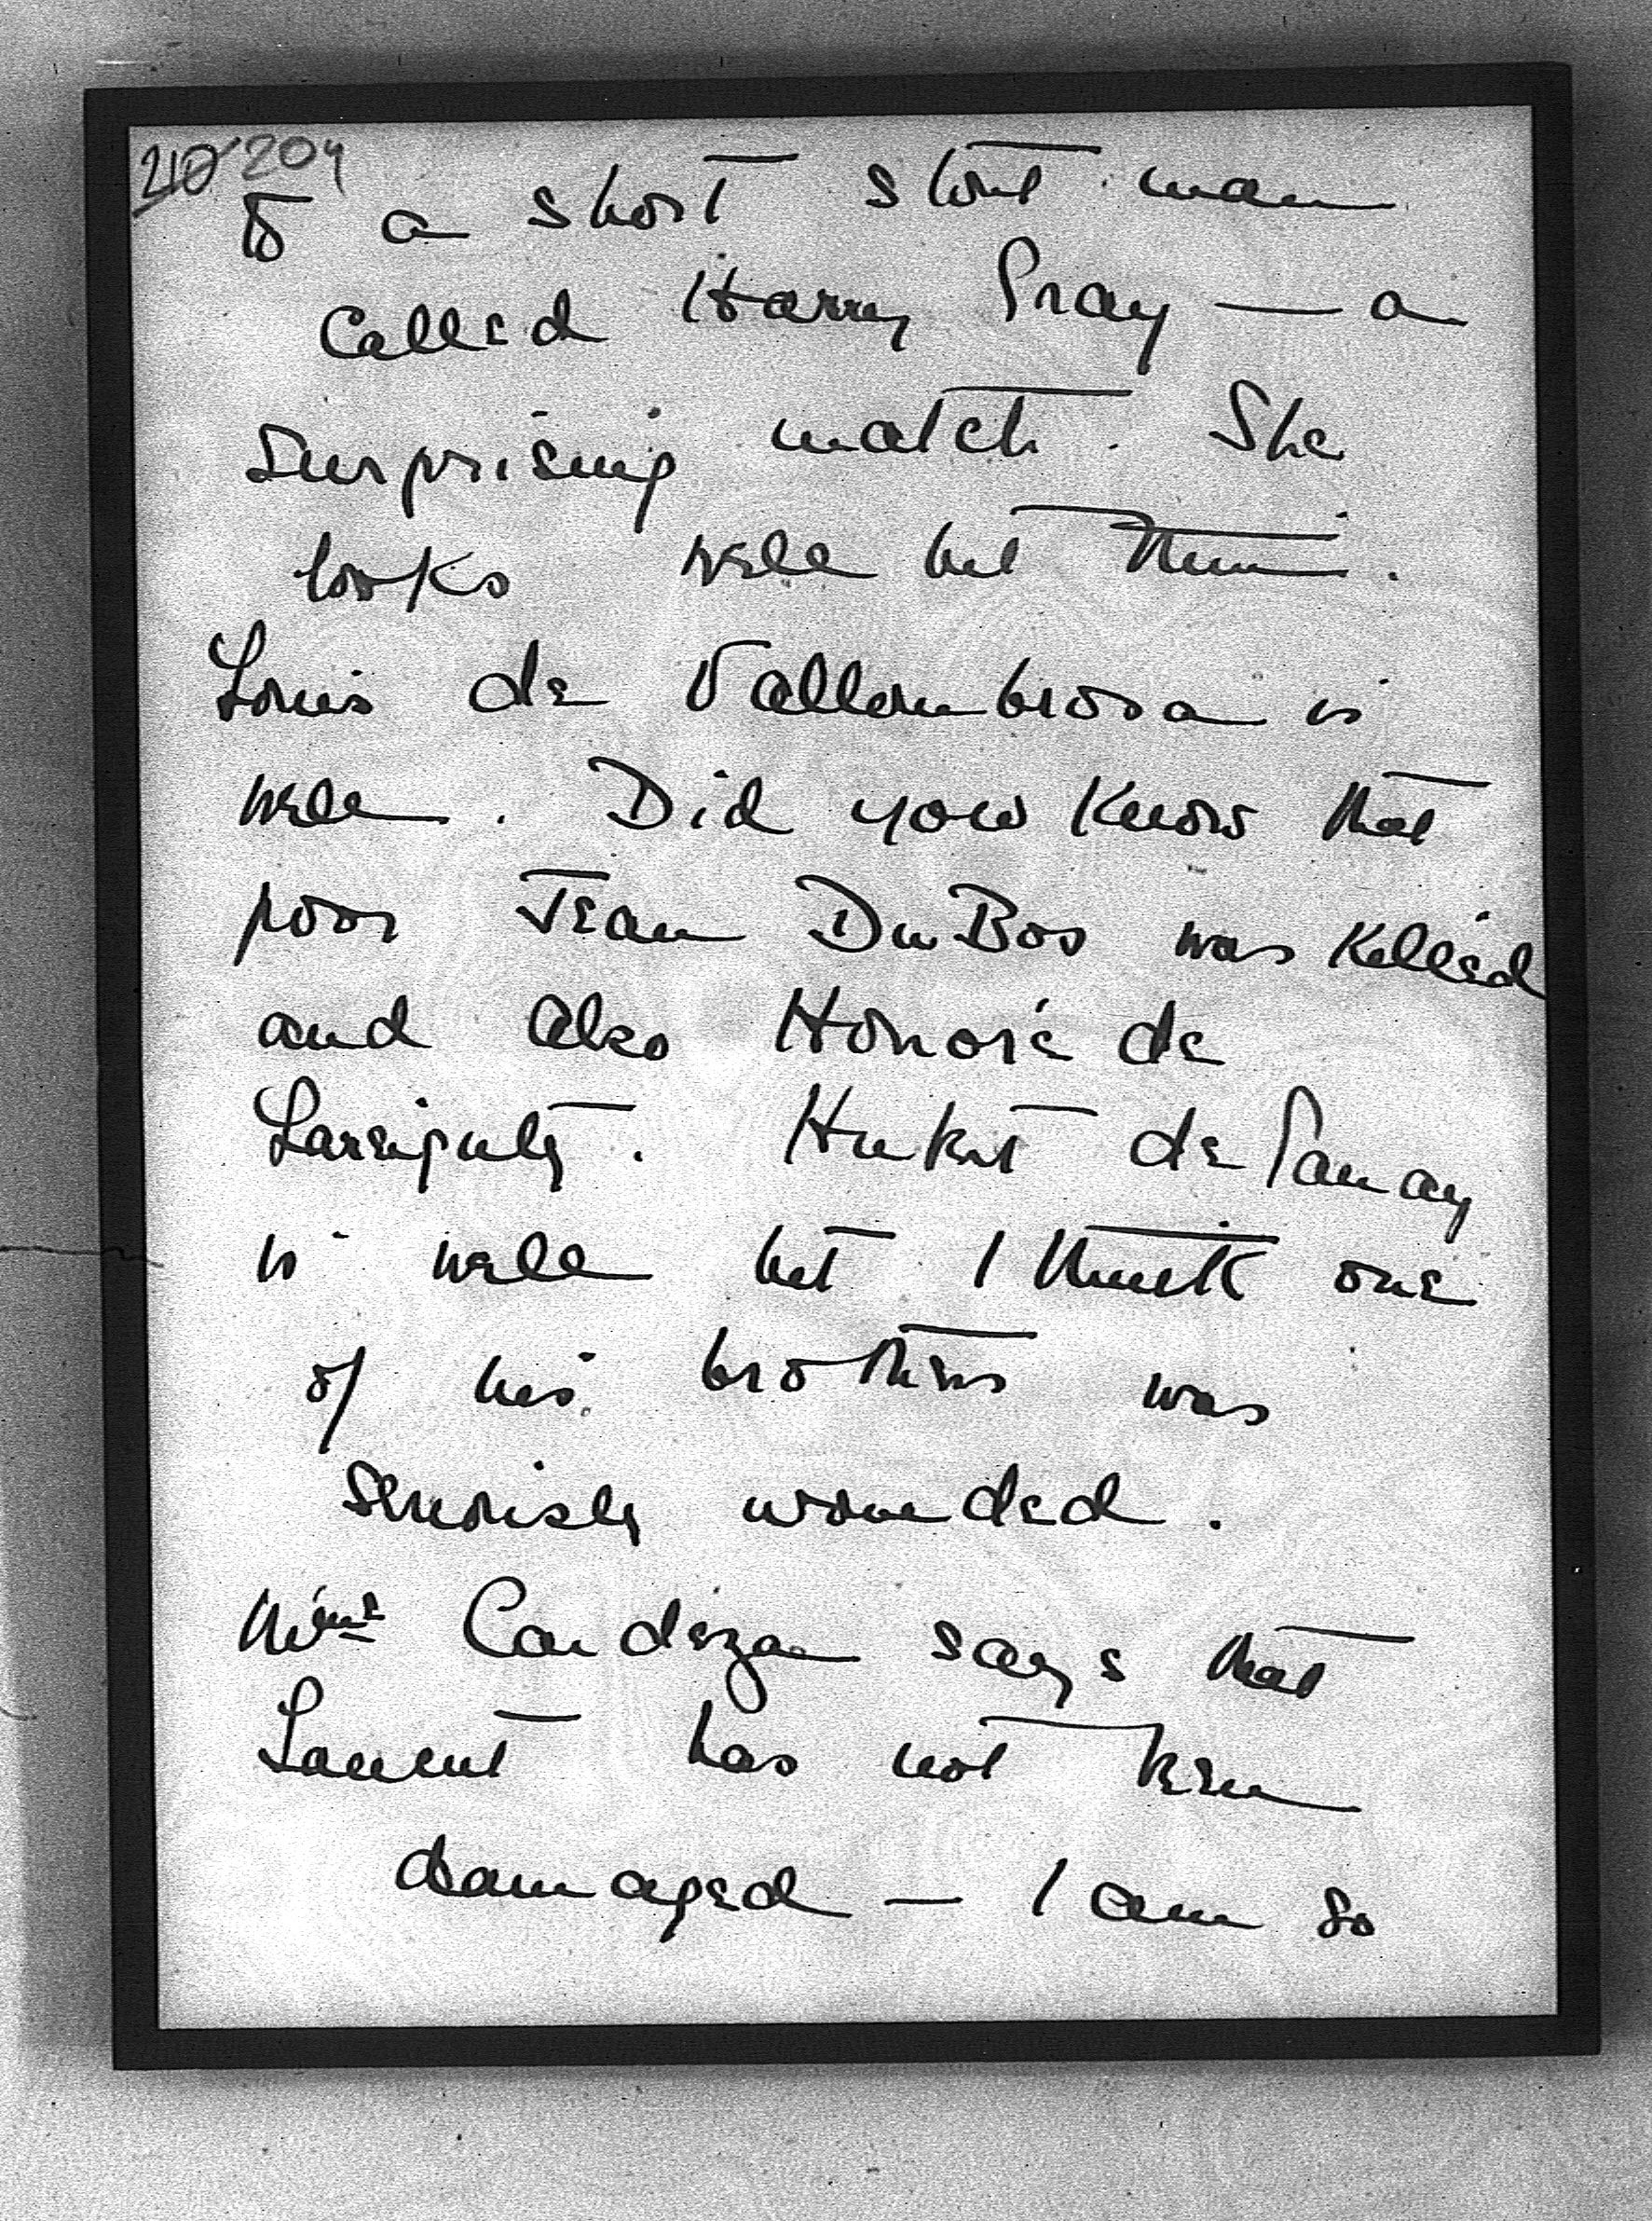 210 204
to a short stout man
called Harry Pray — a
surprising match. She
looks well but thin.
Louis de Vallombrosa is
well. Did you know that
poor Jean DuBos was killed
and also Honoré de
Hubert de
is well but I think one
of his brothers was
seriously wounded.
Mme says that
Laurent has not been
damaged — I am so